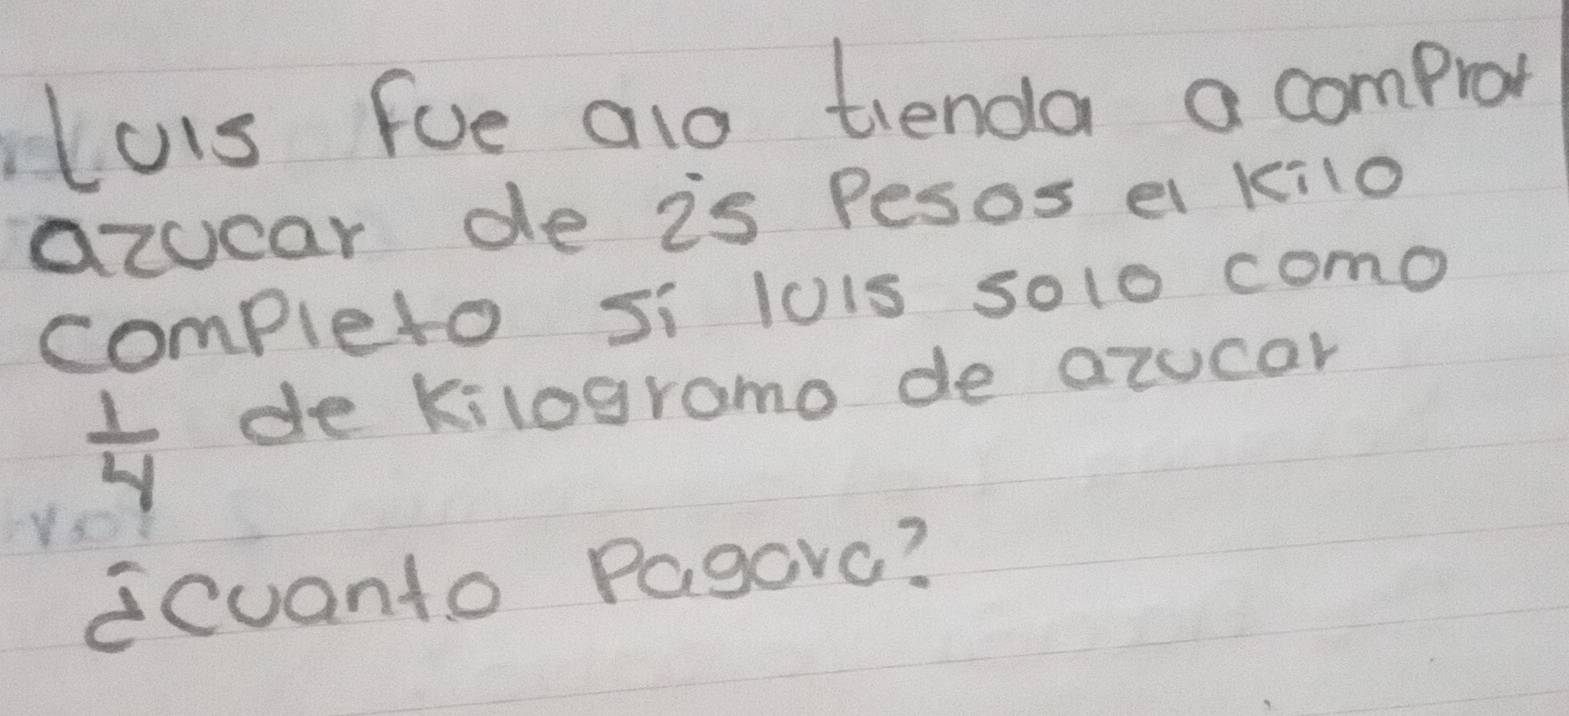 luis fue alo tienda a comprar
azucar de 25 Pesos el Kilo
completo si luis solo como
1/4 de Kilogramo de azucar
¿cuanto Pagara?